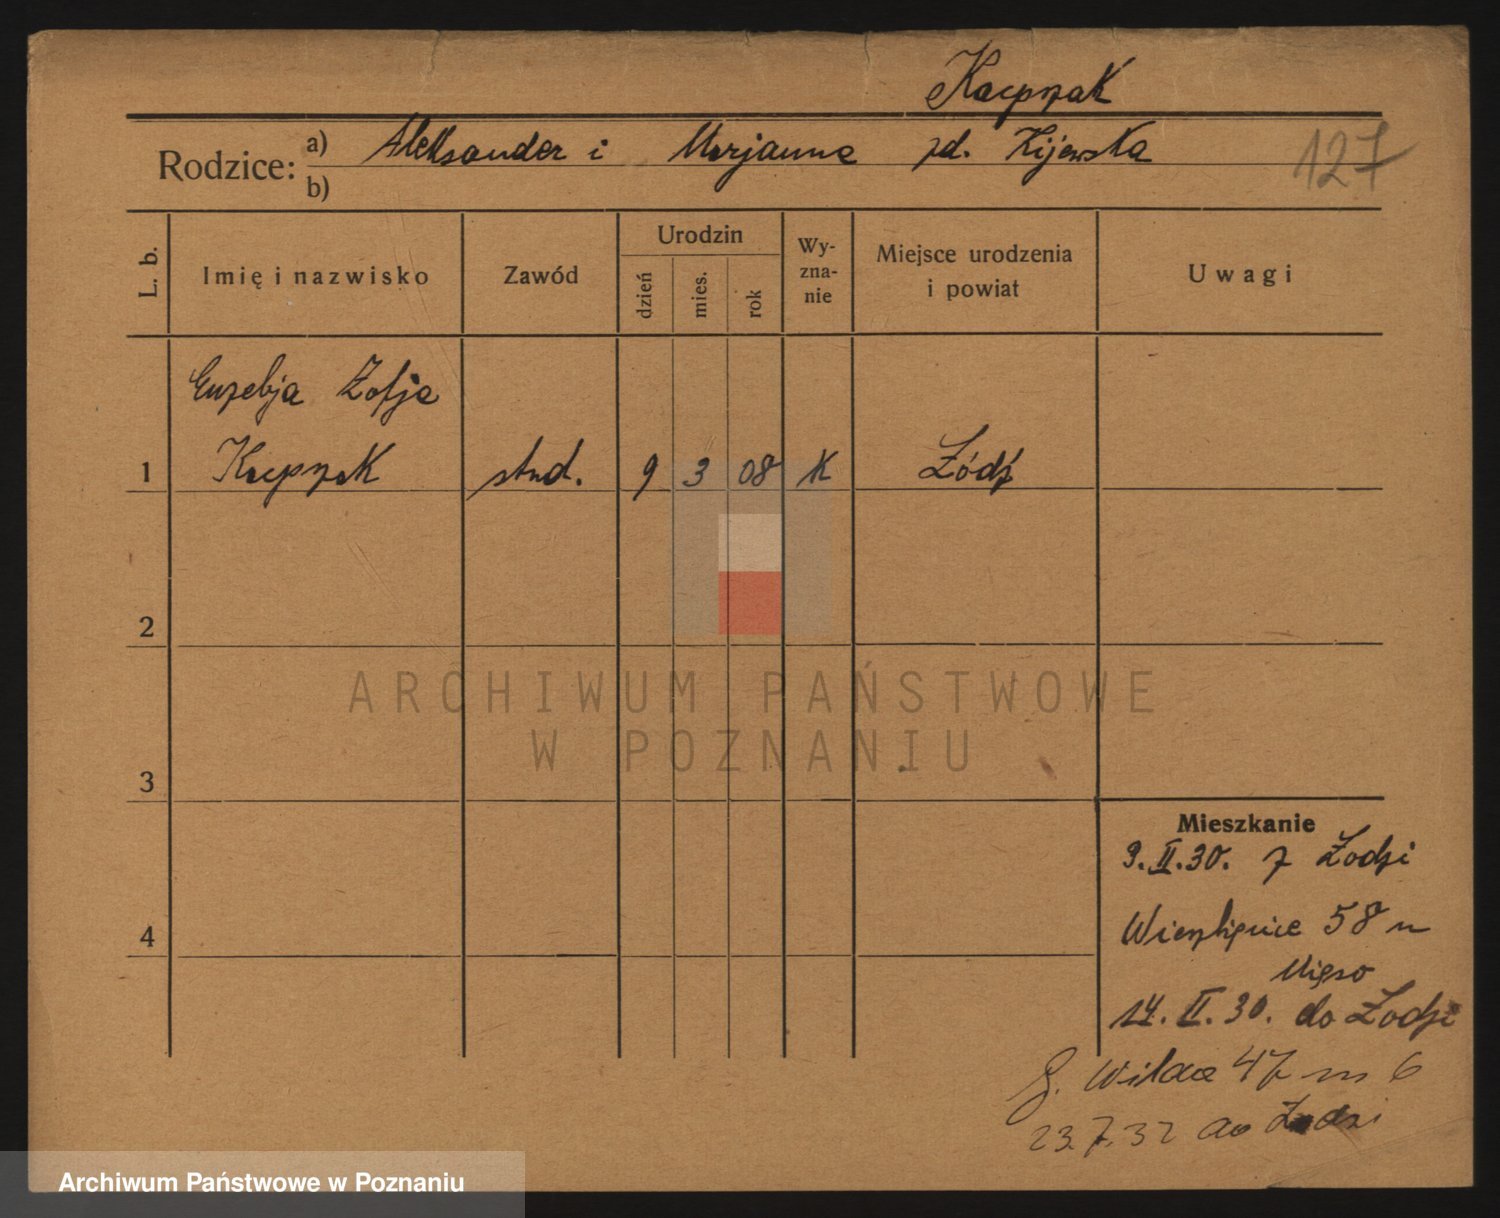 Kacpszak
Rodzice: a) Aleksander i Marjanna zd. Kijewska
b)
127
L. b.
Imię i nazwisko
Zawód
Urodzin
dzień
mies.
rok
Wy-
zna-
nie
Miejsce urodzenia
i powiat
Uwagi
Euzebja Zofja
1 Kacpszak stud. 9 3 08 K Łódź
2
ARCHIWUM PAŃSTWOWE
W POZNANIU
3
4
Mieszkanie
9. II. 30. z Łodzi
58 u
14. II. 30. do Łodzi
G. Wilda 47 m 6
23.7.32 do Łodzi
Archiwum Państwowe w Poznaniu